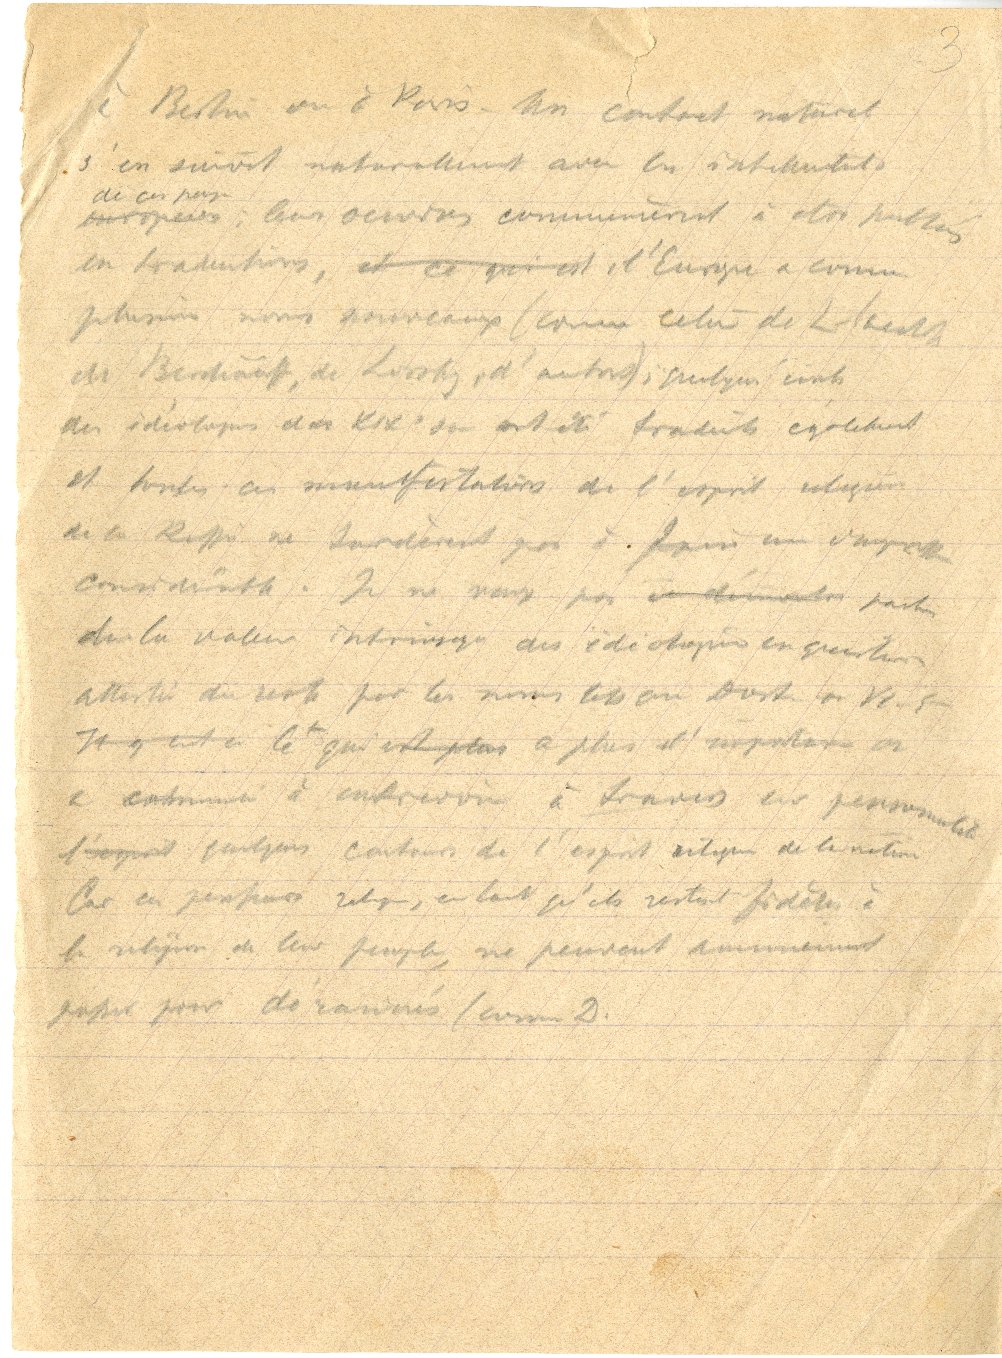 3
à Berlin ou à Paris. Un contact naturel
s'en suivit naturellement avec les intellectuels
de ces pays
européens ; leurs oeuvres commencèrent à etre publiés
en traductions, et ce qui est l'Europe a connu
plusieurs noms nouveaux (comme celui de L.
de Berdiaeff, de Lossky, d'autres) ; quelques écrits
des idéologues des XIX s. ont été traduits également
et toutes ces manifestations de l'esprit religieux
de la Russie ne tardèrent pas à une
considérable. Je ne veux pas parler
de la valeur intrinsèque des idéologies en question
attestée du reste par les noms tels que Dost. ou Vl. S.
Il y a ce qui est plus a plus d'importance on
a commencé à entrevoir à travers ces personnalités
l'esprit quelques contours de l'esprit religieux de la nation
Car ces penseurs relig., en tant qu'ils restent fidèles à
la religion de leur peuple, ne peuvent aucunement
passer pour déracinés (comme D.